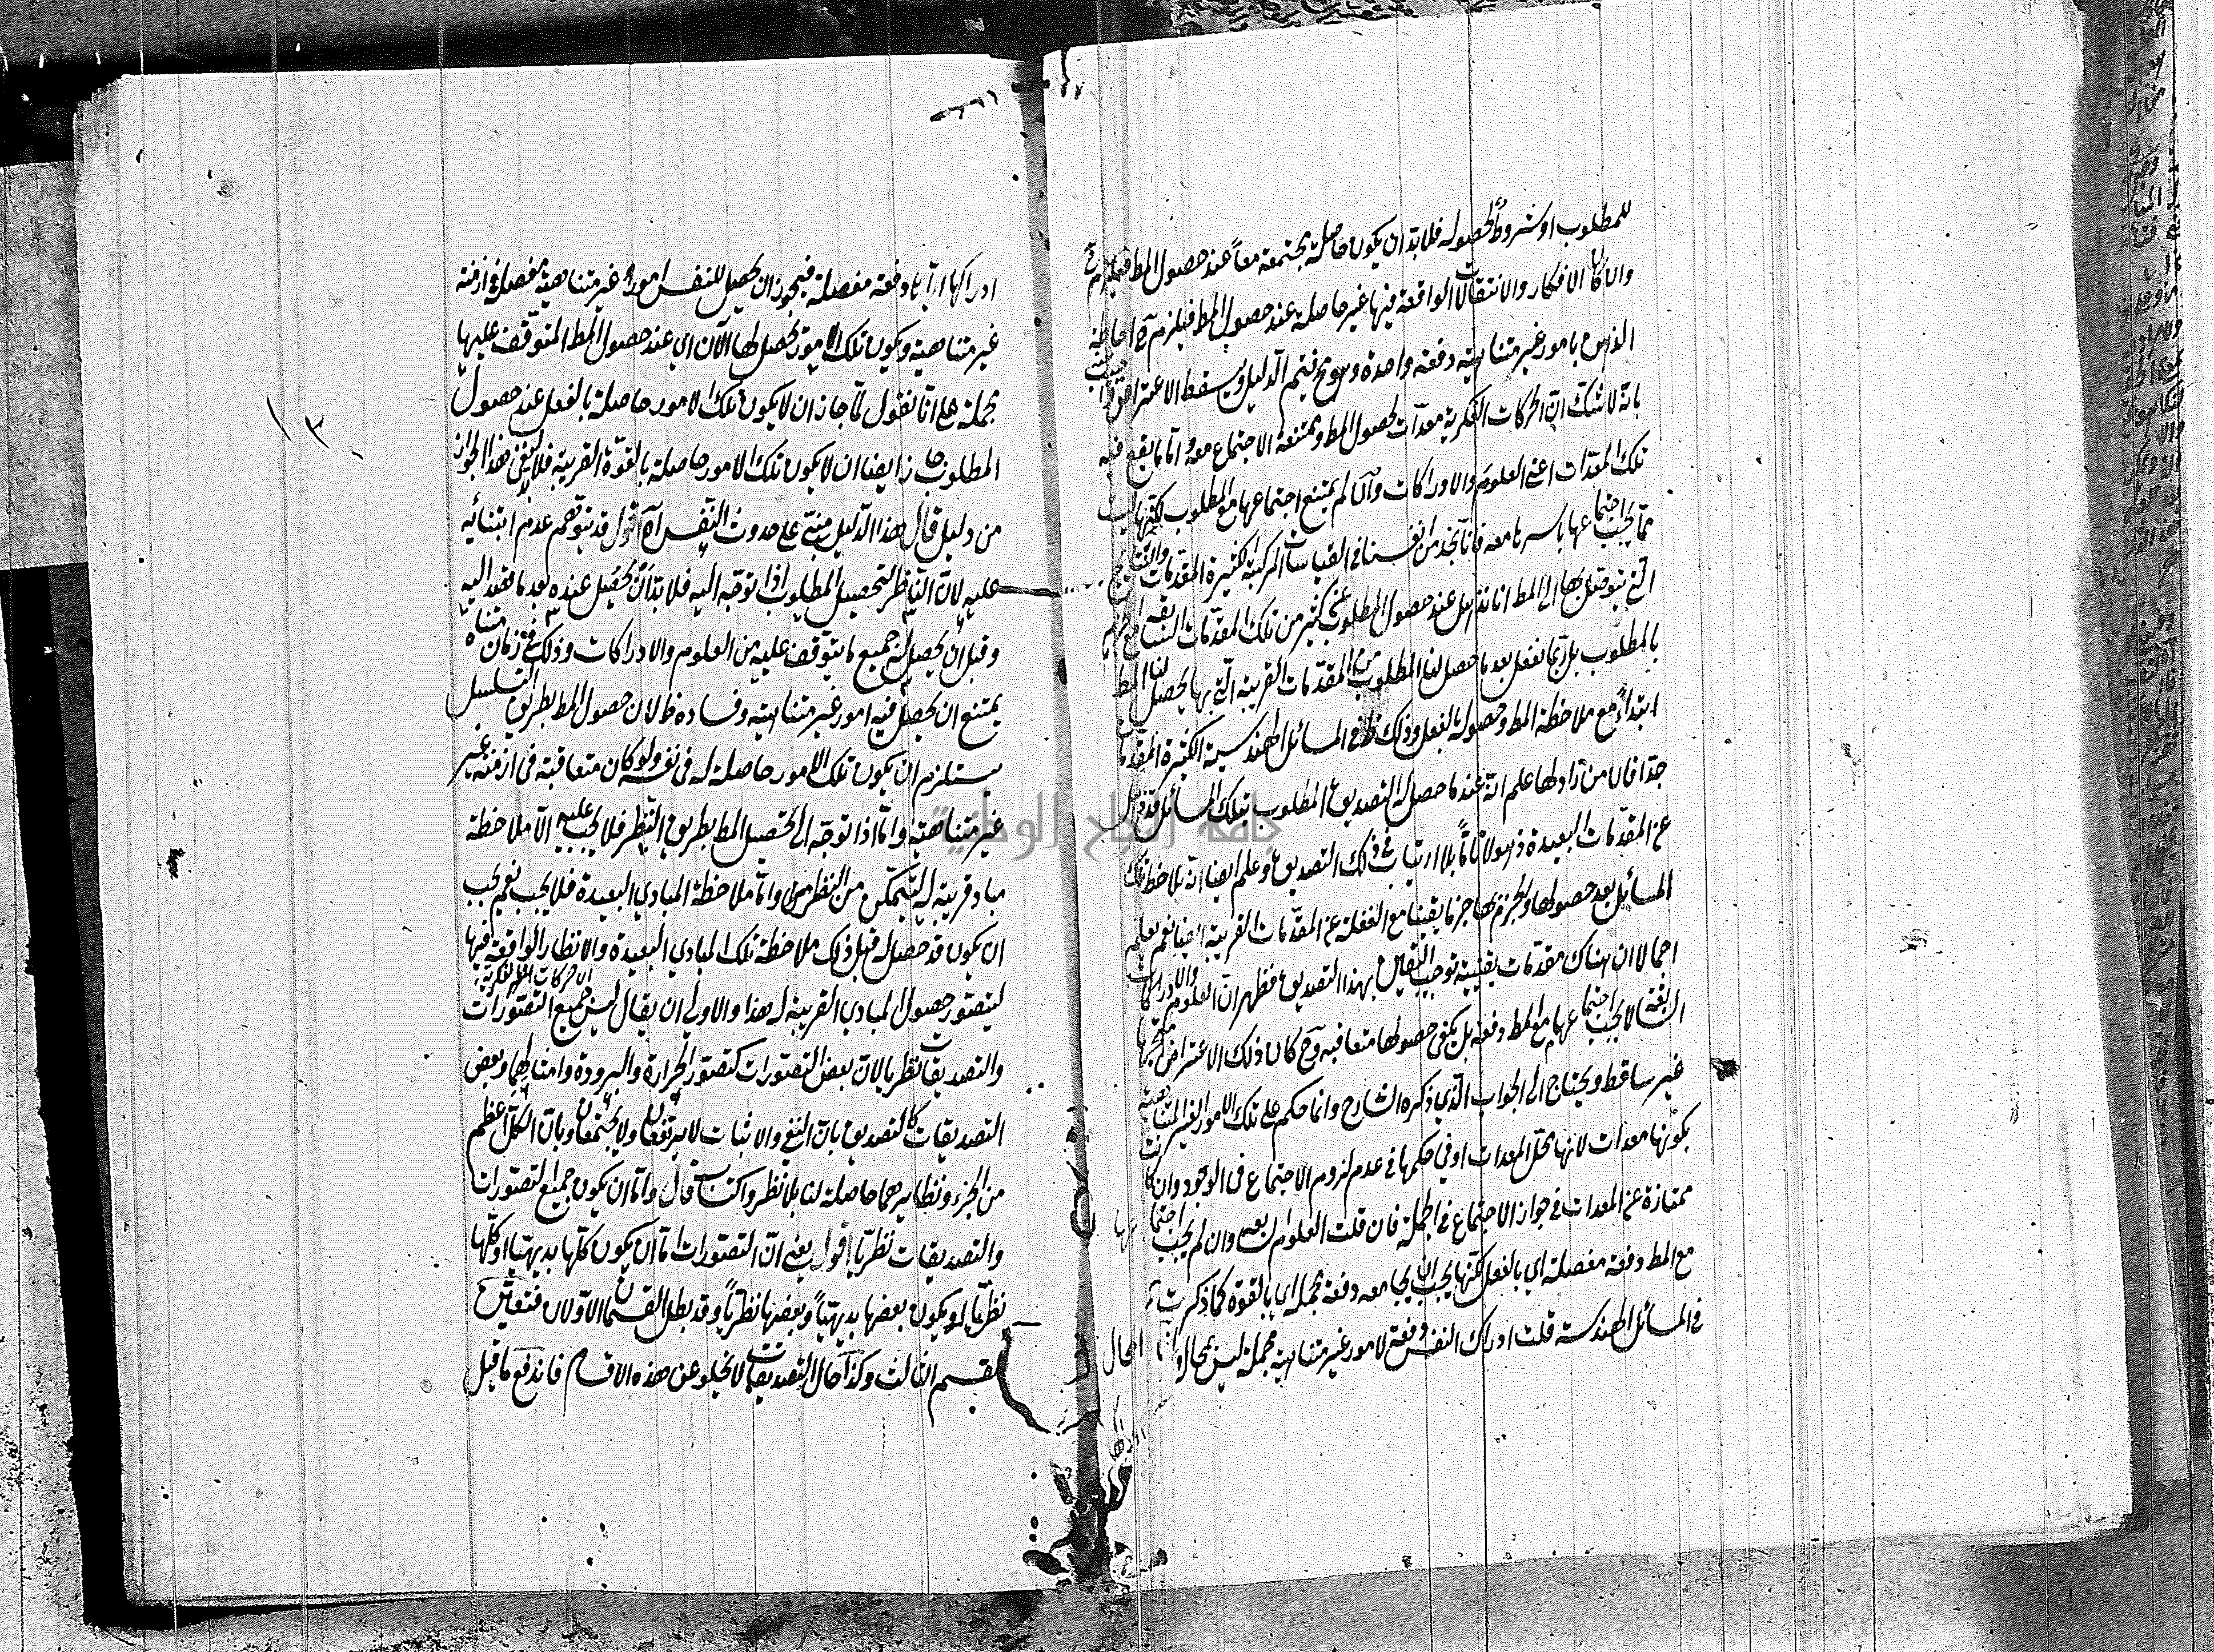 للمطلوب او شروط لحصوله فلا بد ان يكون حاصلة مجتمعة معاً عند حصول المط فيلزم ح
وان كان الافكار والانتقالات الواقعة فيها غير حاصلة عند حصول المط فيلزم ح احاطة
الذهن بامور غير متناهية دفعة واحدة وهو مح فيتم الدليل ويسقط الاعتراض
بانه لا شك ان الحركات الفكرية معدات لحصول المط ويمتنعة الاجتماع معه واما ما يقع فيه
تلك المعدات اعني العلوم والادراكات وان لم يمتنع اجتماعها مع المطلوب لكنها ليست
مما يجب اجتماعها باسرها معه فانا نجد من انفسنا في القياسات المركبة الكثيرة المقدمات
التي نتوصل بها الى المط انا نذهل عند حصول المطلوب عن كثير من تلك المقدمات السابقة مع الجزم
بالمطلوب بل ربما نغفل بعد ما حصل لنا المطلوب من المقدمات القريبة التي بها يحصل لنا المط
ابتداءً مع ملاحظة المط وحصوله بالفعل وذلك ظ في المسائل الهندسية الكثيرة المقدمات
جدا فان من زاولها علم انه عند ما حصل له التصديق المطلوب بتلك المسائل قد ذهل
عن المقدمات البعيدة ذهولا تاماً بلا ارتياب في ذلك التصديق وعلم ايضا انه يلاحظ تلك
المسائل بعد حصولها ويجزم بها جزما يقينا مع الغفلة عن المقدمات القريبة ايضا نعم يعلم
اجمالا ان هناك مقدمات يقينية توجب اليقين بهذا التصديق فظهر ان العلوم والادراكات
السابقة لا يجب اجتماعها مع المط دفعة بل يكفي حصولها متعاقبة وح كان ذلك الاعتراض متجها
غير ساقط ويحتاج الى الجواب الذي ذكره الشارح وانما حكم على تلك الامور الغير المتناهية
بكونها معدات لانها محل المعدات او في حكمها في عدم لزوم الاجتماع في الوجود وان كانت
ممتازة عن المعدات في جواز الاجتماع في الجملة فان قلت العلوم السابقة وان لم يجب اجتماعها
مع المط دفعة مفصلة اي بالفعل لكنها يجب ان يجامعه دفعة مجملة اي بالقوة كما ذكرت
في المسائل الهندسة قلت ادراك النفس دفعة لامور غير متناهية مجملة ليس بمحال وانما المحال
ادراكها اياها دفعة مفصلة فيجوز ان يحصل للنفس امور غير متناهية مفصلة في ازمنة
غير متناهية ويكون تلك الامور تحصل لها الآن اي عند حصول المط المتوقف عليها
مجملة على انا نقول لما جاز ان لا يكون تلك الامور حاصلة بالفعل عند حصول
المطلوب جاز ايضا ان لا يكون تلك الامور حاصلة بالقوة القريبة فلا بد لنفي هذا الجواز
من دليل قال هذا الدليل مبني على حدوث النفس آه اقول قد يتوهم عدم ابتنائه
عليه لان الناظر لتحصيل المطلوب اذا توجه اليه فلا بد ان يحصل عنده بعد ما قصد اليه
وقبل ان يحصل له جميع ما يتوقف عليه من العلوم والادراكات وذلك في زمان متناه
يمتنع ان يحصل فيه امور غير متناهية وفساده ظ لان حصول المط بطريق التسلسل
يستلزم ان يكون تلك الامور حاصلة له في نفسه ولو كان متعاقبة في ازمنة غير
غير متناهية واما اذا توجه الى تحصيل المط بطريق النظر فلا يجب عليه الا ملاحظة
مباد قريبة له ليتمكن من النظر واما ملاحظة المبادي البعيدة فلا يجب نعم يجب
ان يكون قد حصل له قبل ذلك ملاحظة تلك المبادي البعيدة والانظار الواقعة فيها
اي حركات الفكرية
ليتصور حصول المبادي القريبة له هذا والاولى ان يقال ليس جميع التصورات
والتصديقات نظريا لان بعض التصورات كتصور الحرارة والبرودة وامثالهما وبعض
التصديقات كالتصديق بان النفي والاثبات لا يرتفعان ولا يجتمعان وبان الكل اعظم
من الجزء ونظايرهما حاصلة لنا بلا نظر واكتساب قال واما ان يكون جميع التصورات
والتصديقات نظريا اقول يعني ان التصورات اما ان يكون كلها بديهيا او كلها
نظريا او يكون بعضها بديهياً وبعضها نظرياً وقد بطل القسمان الاولان فتعين
القسم الثالث وكذا حال التصديقات لا يخلو عن هذه الاقسام فاندفع ما قيل
جامعة النجاح الوطنية